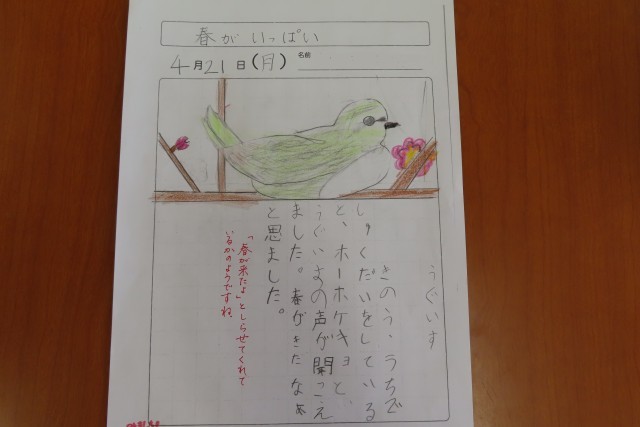 春がいっぱい
4月21日(月)
名前
うぐいす
きのう、うちで
しゅくだいをしている
と、ホーホケキョと、
うぐいすの声が聞こえ
ました。春がきたなぁ
と思ました。
「春が来たよ」としらせてくれて
いるかのようですね。